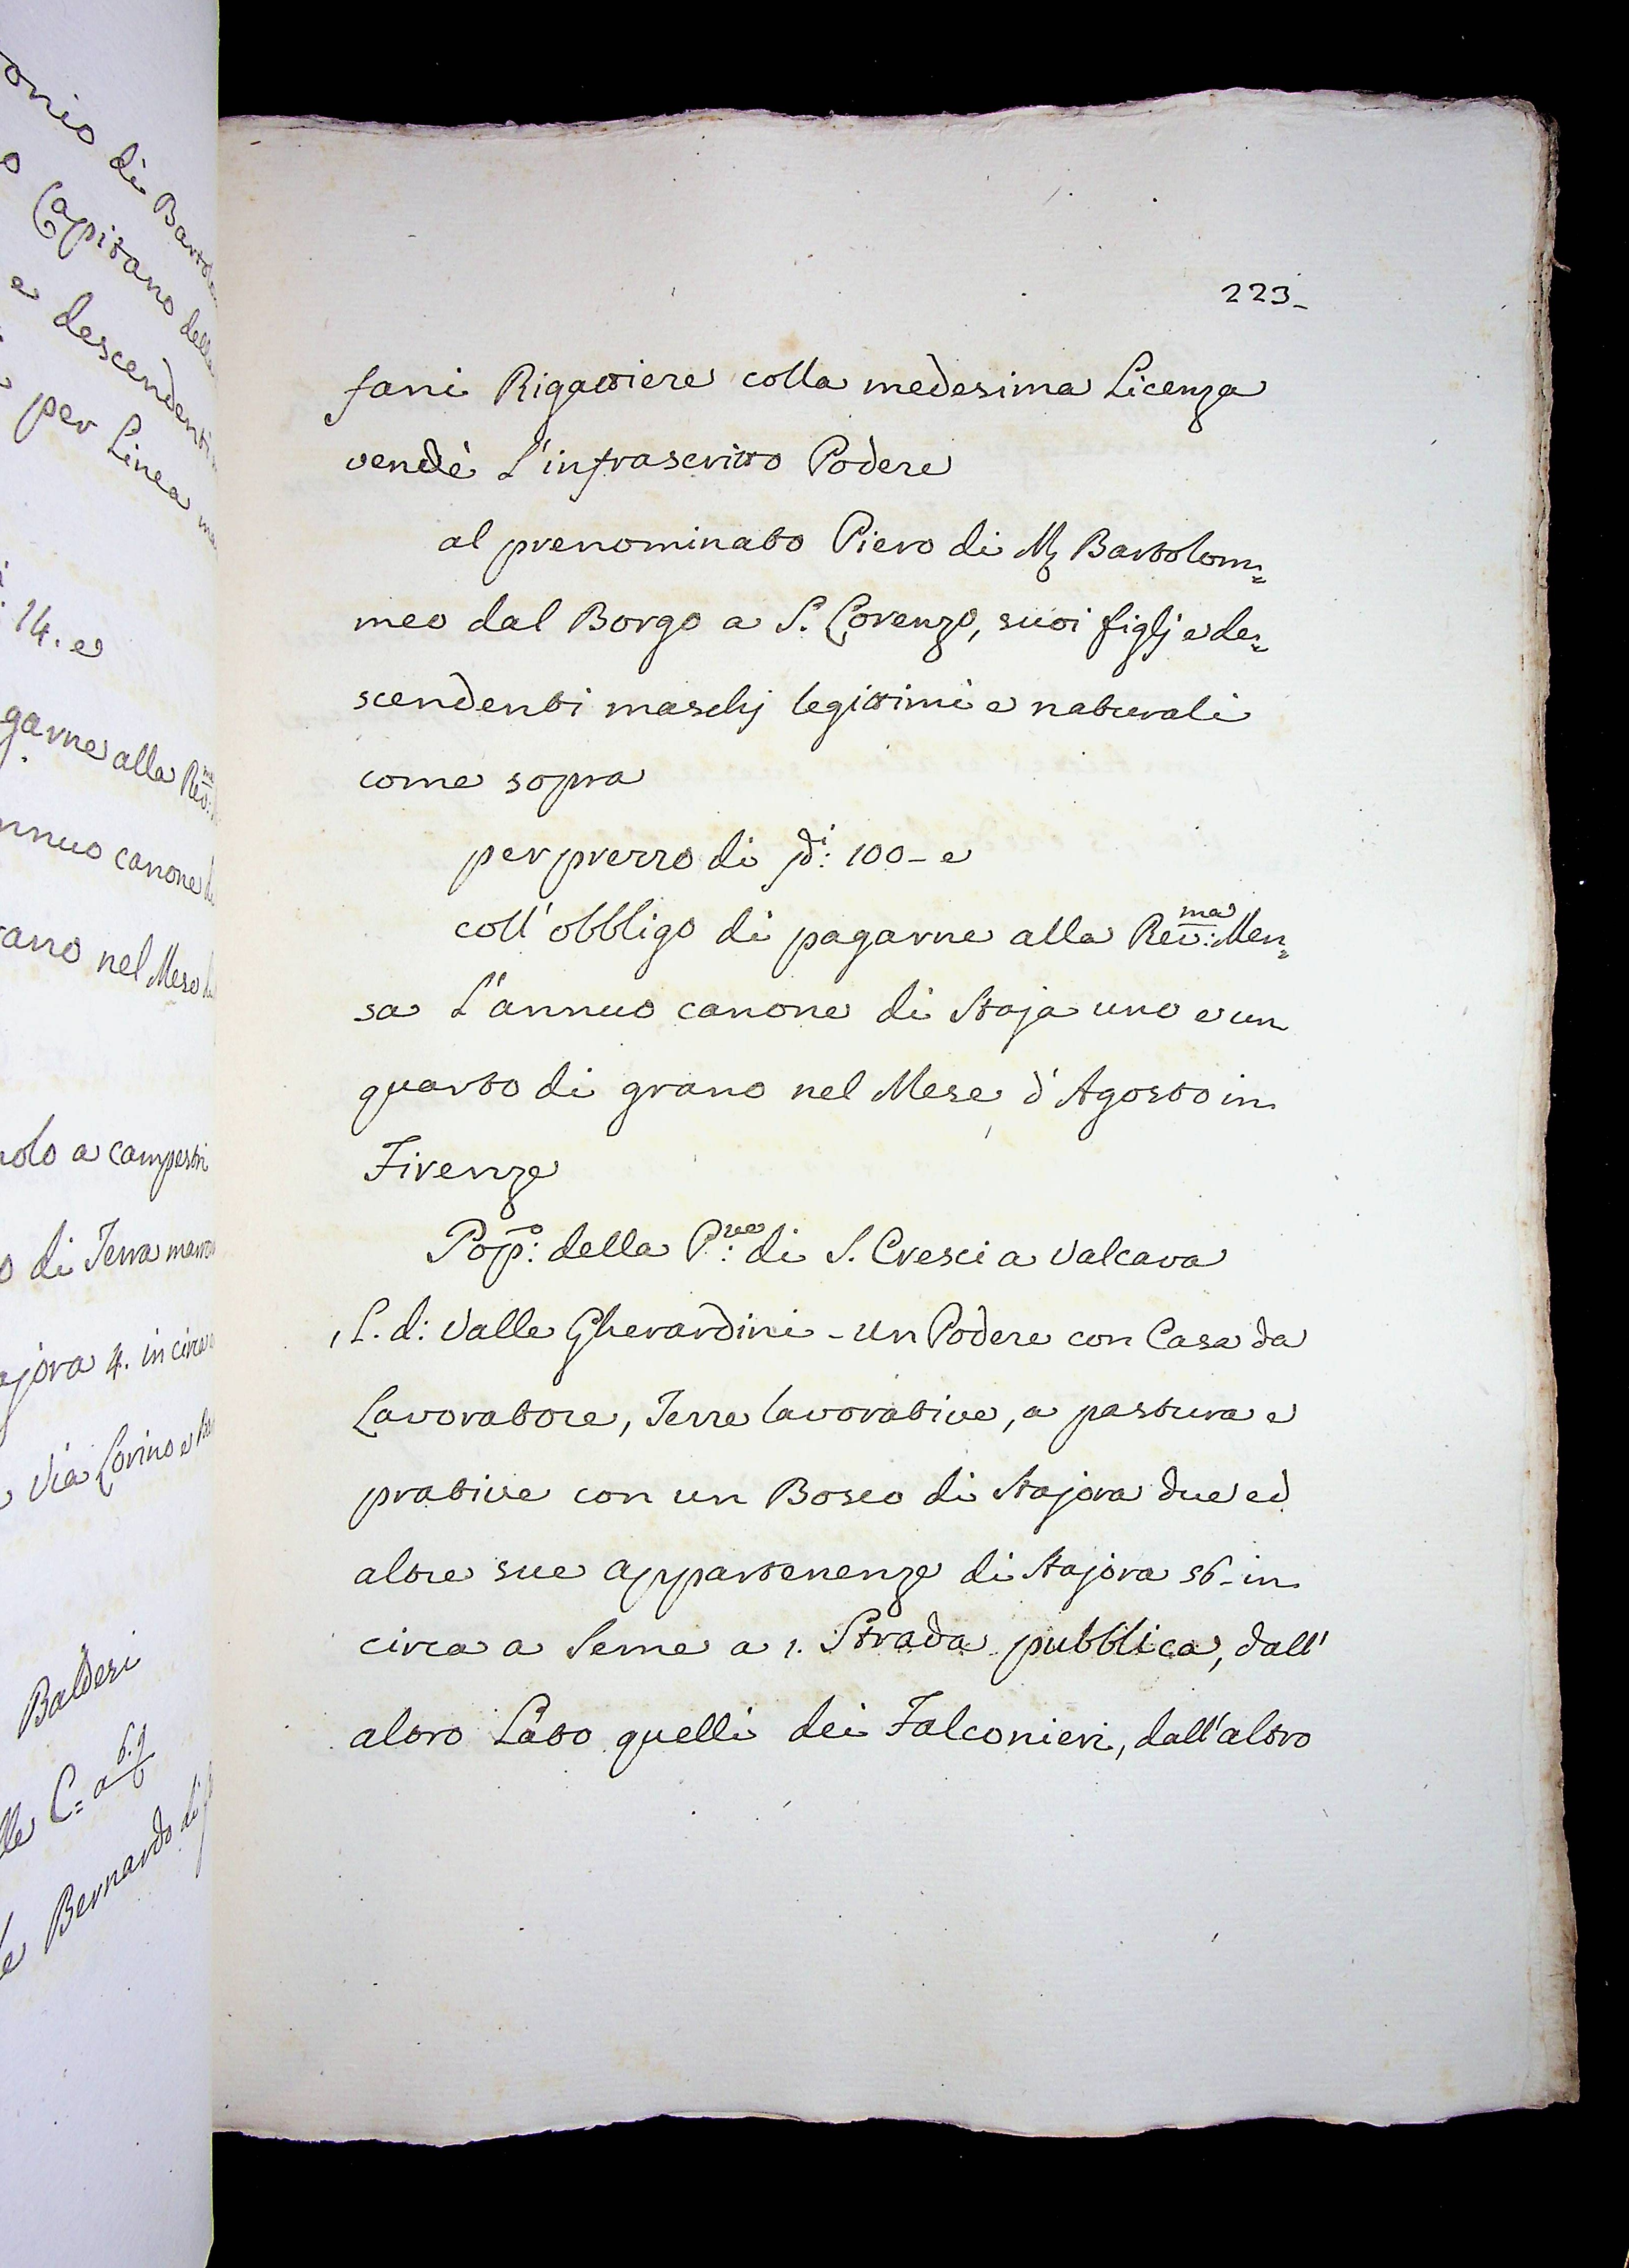 onio di Bartol
o Capitano delle
e descendenti
per Linea ma
14. e
garne alla Rev:ma
nnuo canone di
rano nel Mese
olo a campestri
o di Terra
ajora 4. in circa
Via Corino e
Balderi
lle C=
Bernardo di
223-
fani Rigattiere colla medesima Licenza
vendè l'infrascritto Podere
al prenominato Piero di Mg Bartolom=
meo dal Borgo a S. Lorenzo, suoi figlj e de=
scendenti maschj legittimi e naturali
come sopra
per prezzo di 100- e
coll'obbligo di pagarne alla Rev:ma Men=
sa l'annuo canone di Staja uno e un
quarto di grano nel Mese d'Agosto in
Firenze
Pop:o della P:ve di S. Cresci a Valcava
L. d: Valle Gherardini - Un Podere con Casa da
Lavoratore, Terre lavorative, a pastura e
prative con un Bosco di Stajora due ed
altre sue appartenenze di Stajora 56- in
circa a Seme a 1. Strada pubblica, dall'
altro Lato quelli dei Falconieri, dall'altro